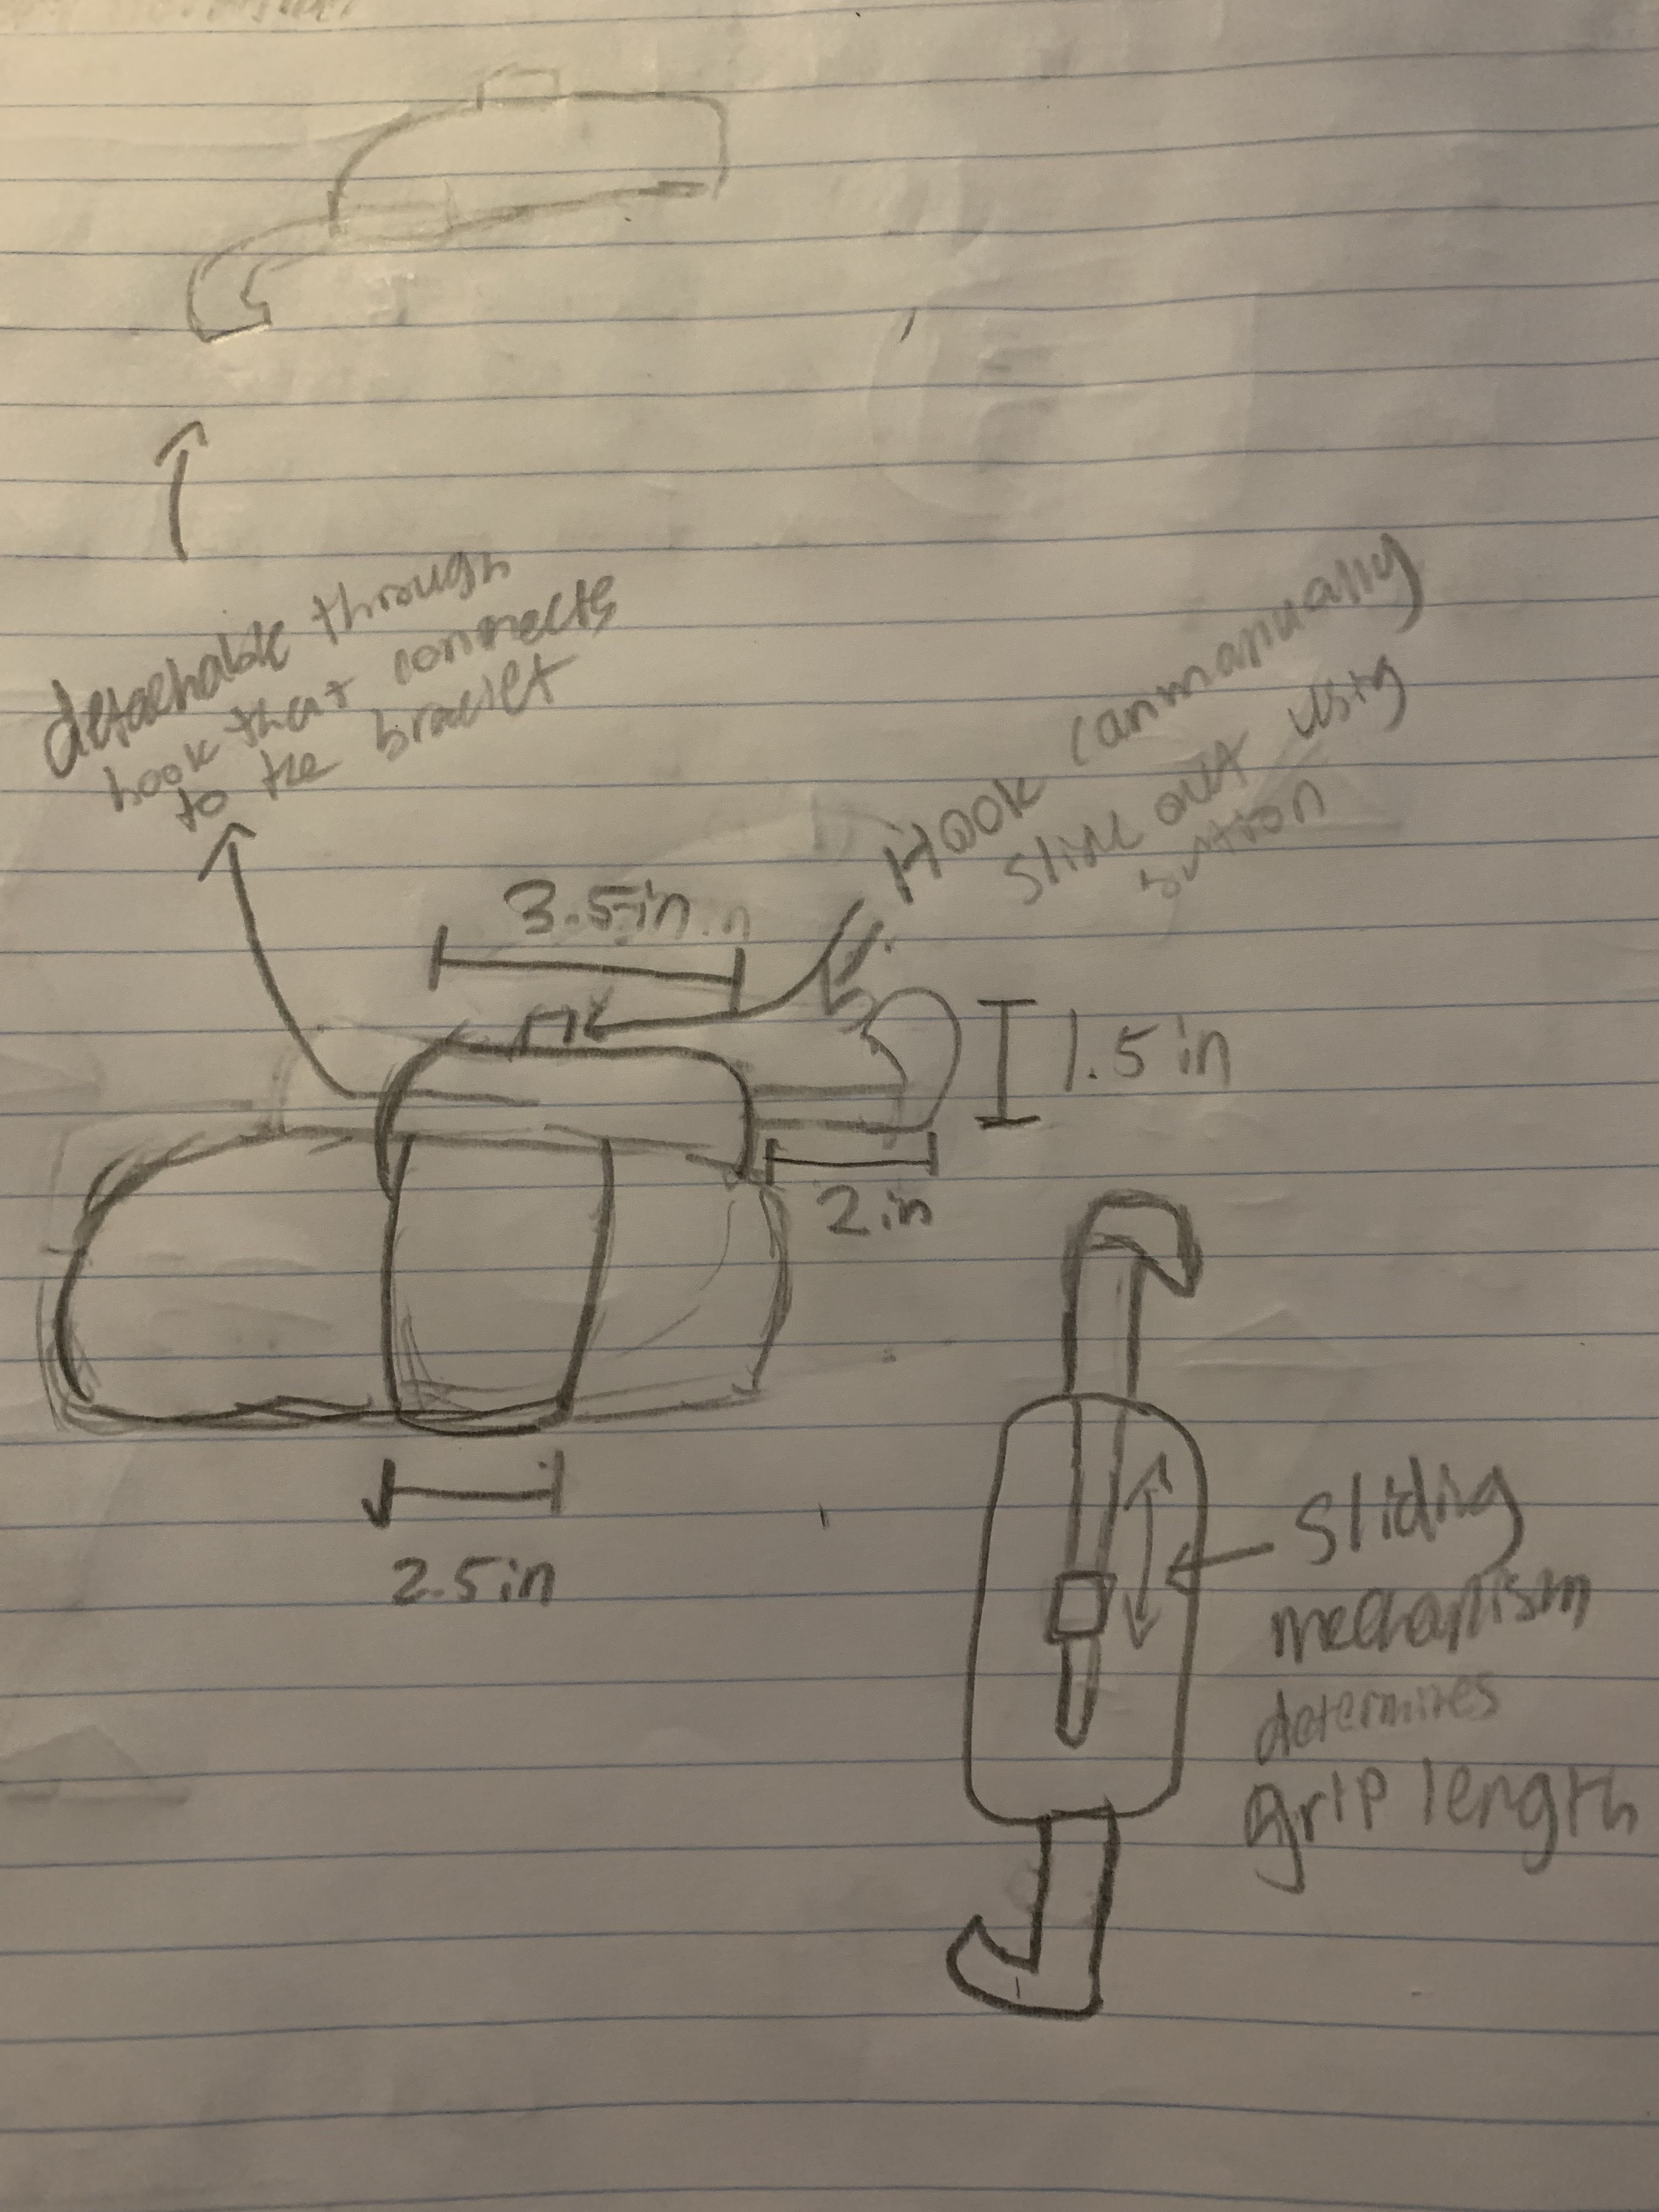 detachable through
hook that connects
to the braclet
Hook can manually
slide out using
button
3.5in
1.5 in
2in
2.5in
Sliding
mechanism
determines
grip length